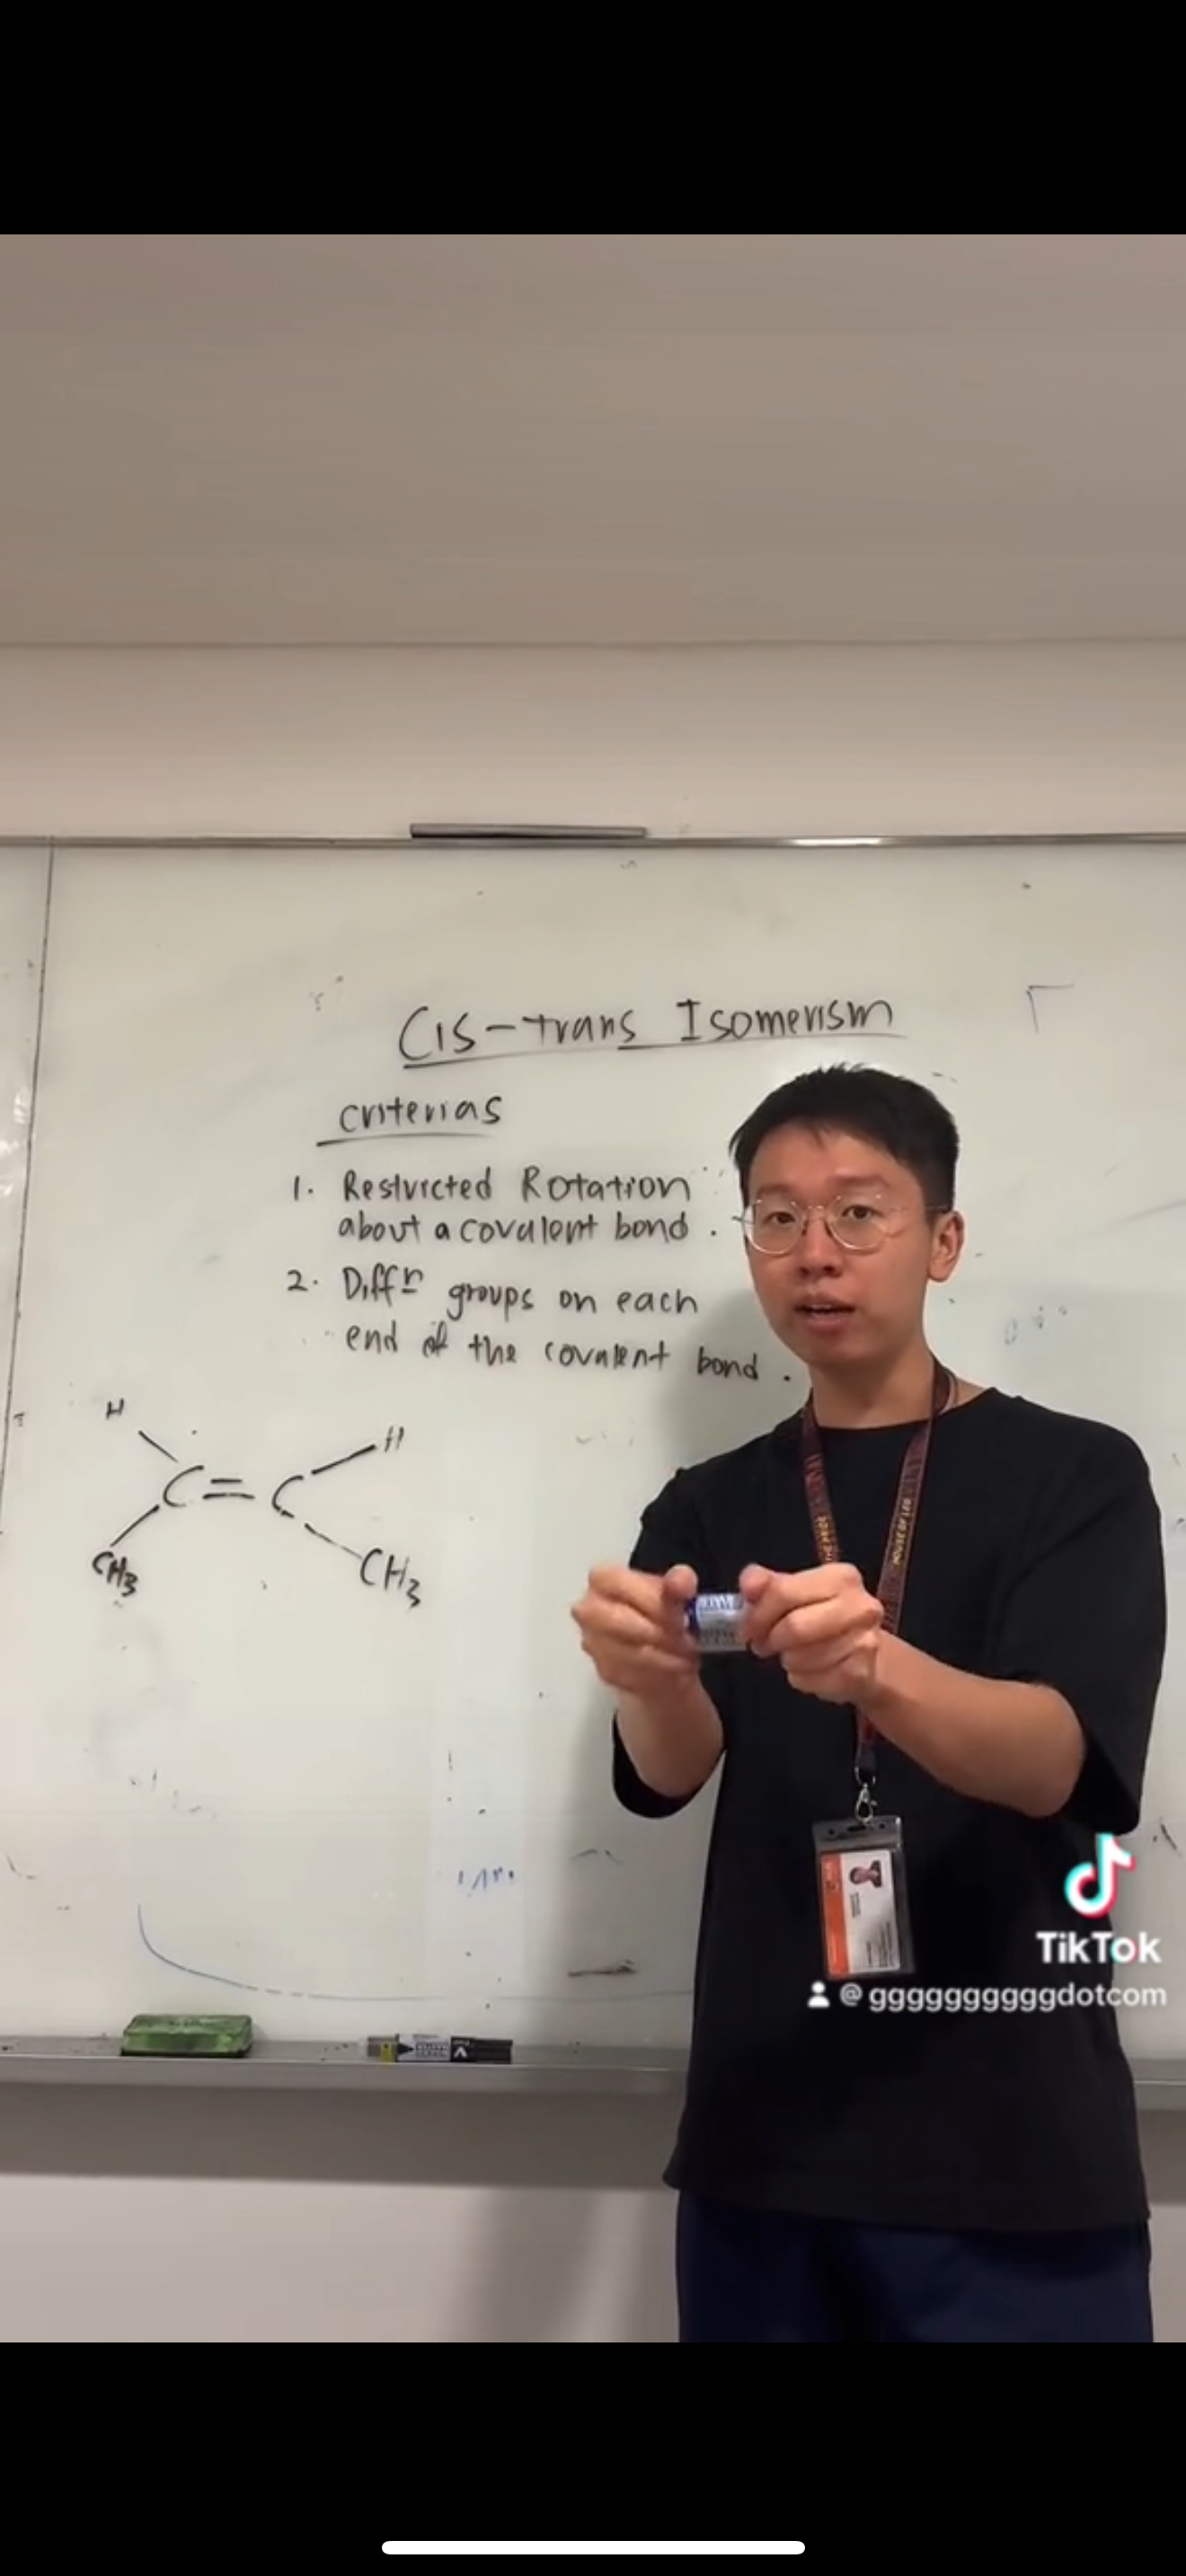 Cis-trans Isomerism
criterias
1. Restricted Rotation
about a covalent bond.
2. Diffn groups on each
end of the covalent bond.
H
H
C=C
CH3
CH3
HOUSE OF LEO
TikTok
@ggggggggggdotcom